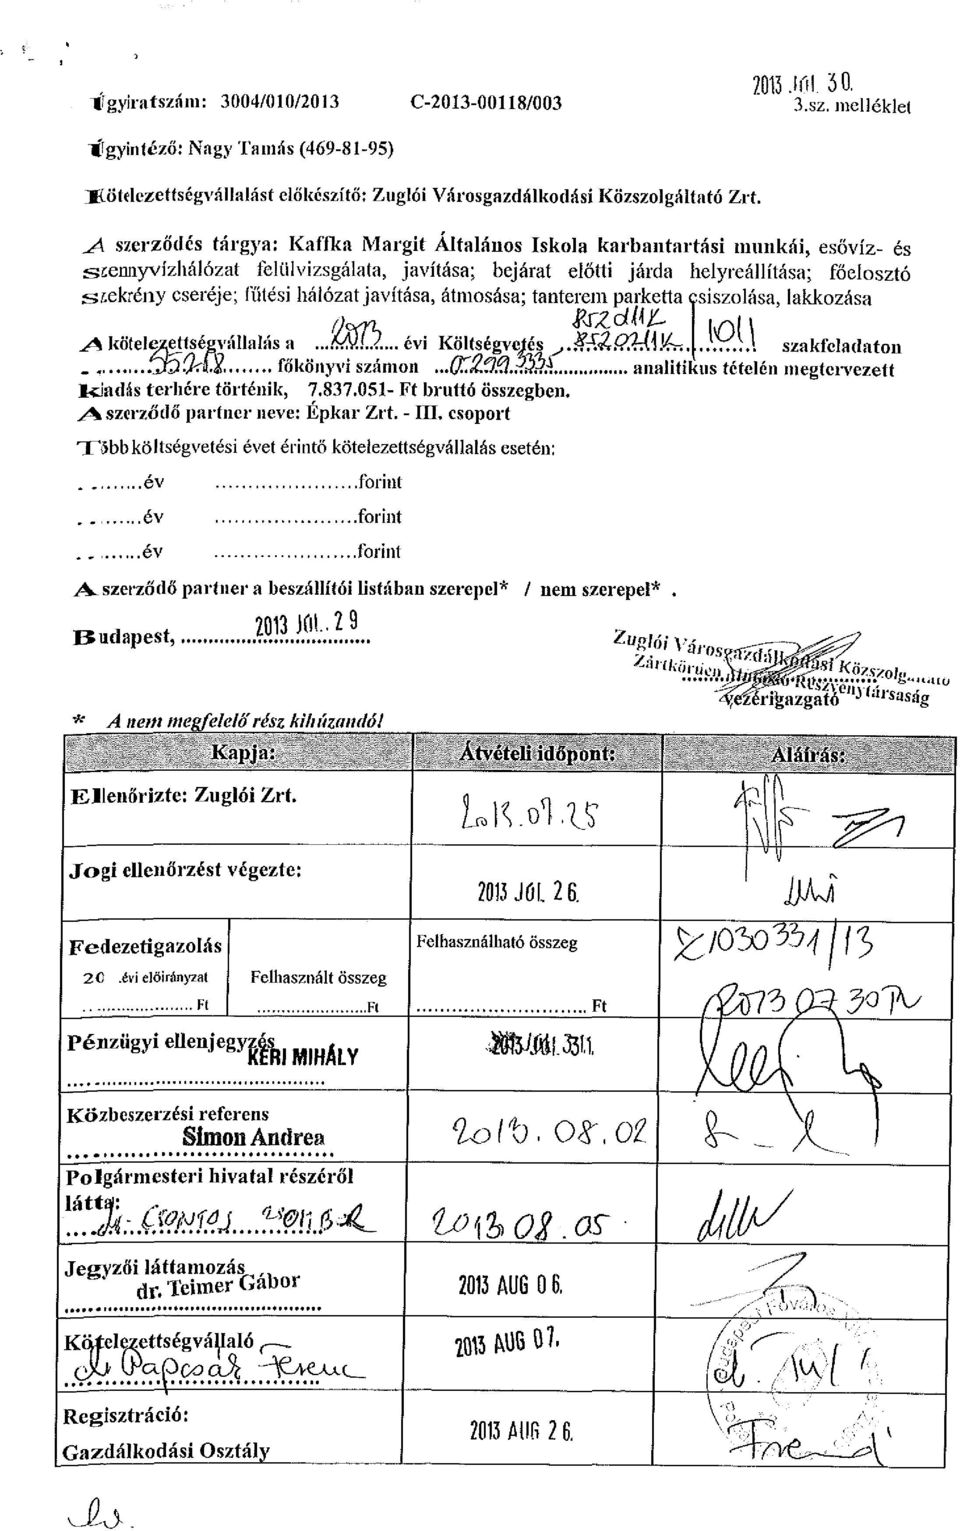 2013 JÚL 30.
Ügyiratszám: 3004/010/2013 C-2013-00118/003
3.sz. melléklet
Ügyintéző: Nagy Tamás (469-81-95)
Kötelezettségvállalást előkészítő: Zuglói Városgazdálkodási Közszolgáltató Zrt.
A szerződés tárgya: Kaffka Margit Általános Iskola karbantartási munkái, esővíz- és
szennyvízhálózat felülvizsgálata, javítása; bejárat előtti járda helyreállítása; főelosztó
szekrény cseréje; fűtési hálózat javítása, átmosása; tanterem parketta csiszolása, lakkozása
A kötelezettségvállalás a ...2013.... évi Költségvetés 1011 szakfeladaton
főkönyvi számon analitikus tételén megtervezett
kiadás terhére történik, 7.837.051- Ft bruttó összegben.
A szerződő partner neve: Épkar Zrt. - III. csoport
Több költségvetési évet érintő kötelezettségvállalás esetén:
.........év ......................forint
.........év ......................forint
.........év ......................forint
A szerződő partner a beszállítói listában szerepel* / nem szerepel* .
Budapest, 2013 JÚL. 29
Zuglói Városgazdálkodási Közszolgáltató
Zártkörűen Működő Részvénytársaság
vezérigazgató
* A nem megfelelő rész kihúzandó!
Kapja: Átvételi időpont: Aláírás:
Ellenőrizte: Zuglói Zrt. 2013.07.25
Jogi ellenőrzést végezte: 2013 JÚL 26.
Fedezetigazolás Felhasználható összeg 1030331/13
20 .évi előirányzat Felhasznált összeg
.....................Ft .....................Ft .............................. Ft 2013 07 30
Pénzügyi ellenjegyzés
KÉRI MIHÁLY
Közbeszerzési referens
Simon Andrea 2013.08.02
Polgármesteri hivatal részéről
látta:
dr. CSONTOS 2013 08.05
Jegyzői láttamozás
dr. Teimer Gábor 2013 AUG 06.
Kötelezettségvállaló 2013 AUG 07.
dr Papcsák Ferenc
Regisztráció: 2013 AUG 26.
Gazdálkodási Osztály